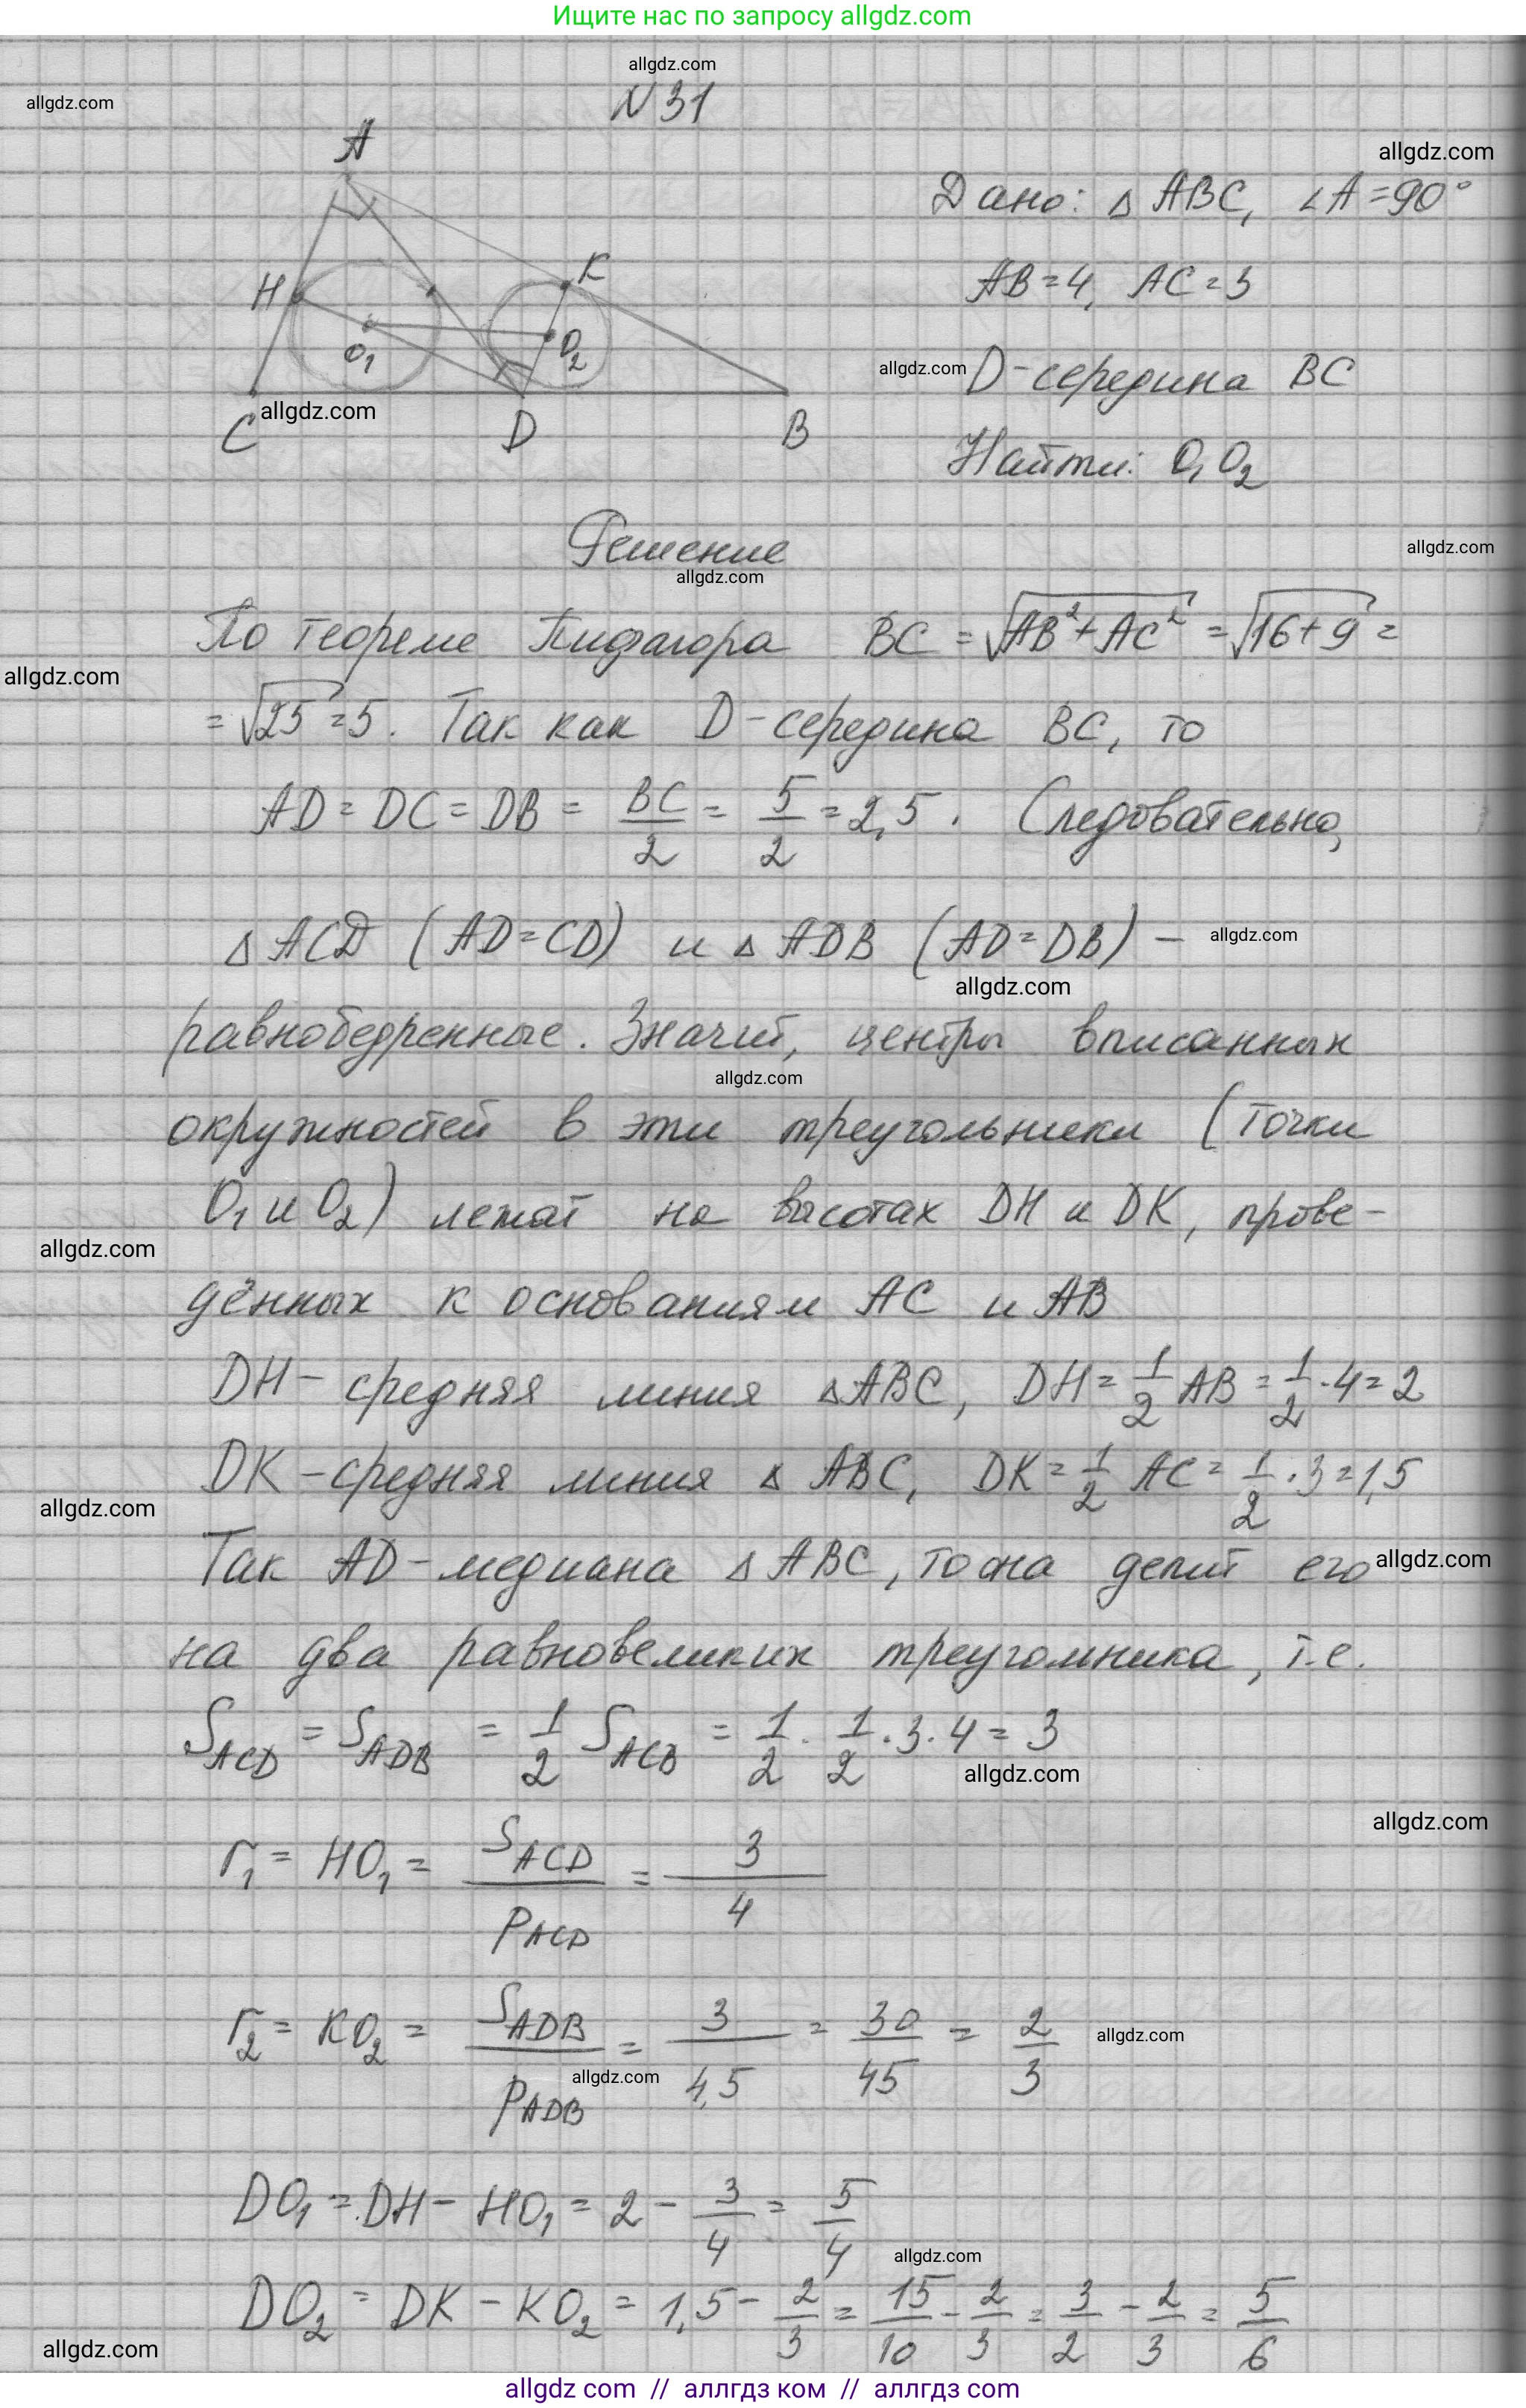 Ищите нас по запросу allgdz.com
allgdz.com
N 31
allgdz.com
allgdz.com
A
Дано: △ ABC, ∠A = 90°
H
K
AB = 4, AC = 3
O₁
O₂
allgdz.com
D - середина BC
allgdz.com
C
D
B
Найти: O₁O₂
Решение
allgdz.com
allgdz.com
По теореме Пифагора BC = √(AB² + AC²) = √(16 + 9) =
allgdz.com
= √25 = 5. Так как D - середина BC, то
AD = DC = DB = BC/2 = 5/2 = 2,5. Следовательно,
△ ACD (AD = CD) и △ ADB (AD = DB) –
allgdz.com
allgdz.com
равнобедренные. Значит, центры вписанных
allgdz.com
окружностей в эти треугольники (точки
O₁ и O₂) лежат на высотах DH и DK, прове-
allgdz.com
дённых к основаниям AC и AB
DH - средняя линия △ABC, DH = 1/2 AB = 1/2 · 4 = 2
DK - средняя линия △ ABC, DK = 1/2 AC = 1/2 · 3 = 1,5
allgdz.com
Так AD - медиана △ ABC, то она делит его
allgdz.com
на два равновеликих треугольника, т.е.
S_ACD = S_ADB = 1/2 S_ACB = 1/2 · 1/2 · 3 · 4 = 3
allgdz.com
allgdz.com
r₁ = HO₁ = S_ACD/p_ACD = 3/4
r₂ = KO₂ = S_ADB/p_ADB = 3/4,5 = 30/45 = 2/3
allgdz.com
allgdz.com
DO₁ = DH - HO₁ = 2 - 3/4 = 5/4
allgdz.com
DO₂ = DK - KO₂ = 1,5 - 2/3 = 15/10 - 2/3 = 3/2 - 2/3 = 5/6
allgdz.com
allgdz.com // аллгдз ком // аллгдз com